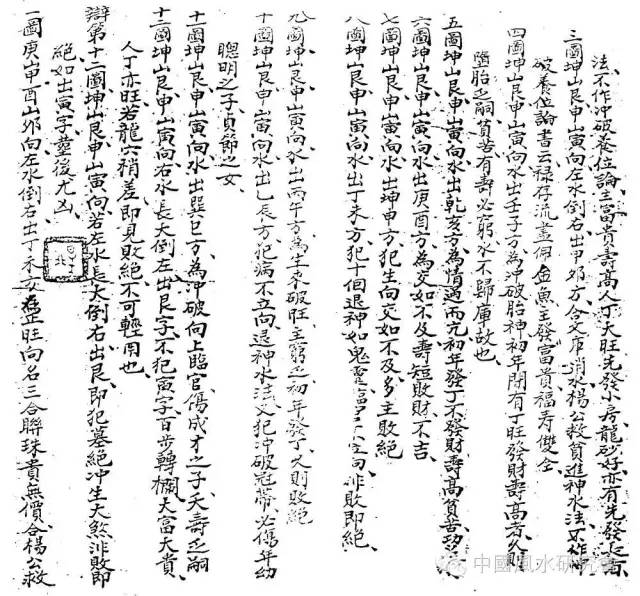 法不作冲破养位論主富貴壽高人丁大旺先發小房龍砂好亦有先發長
三圖坤山艮申山寅向左水倒右出甲卯方合文库消水楊公救貧進神水法不作冲
破養位論書云禄存流盡佩金魚主發富貴福寿雙全
四圖坤山艮申山寅向水出壬子方為冲破胎神初年間有丁旺發財壽高者久則
墮胎乏嗣貧苦有壽必窮水不歸庫故也
五圖坤山艮申山寅向水出乾亥方為情過而亢初年發丁不發財壽高貧苦功
六圖坤山艮申山寅向水出庚酉方為交如不及壽短敗財不吉
七圖坤山艮申山寅向水出坤申方犯生向交如不及多主敗絕
八圖坤山艮申山寅向水出丁未方犯十個退神如鬼靈 向非敗即絕
九圖坤山艮申山寅向水出丙午方為生来破旺主窮乏初年發丁久則敗絕
十圖坤山艮申山寅向水出乙辰方犯病不立向退神水法又犯冲破冠帶必傷年幼
聰明之子貞節之女
十一圖坤山艮申山寅向水出巽巳方為冲破向上臨官傷成才之子夭壽乏嗣
十二圖坤山艮申山寅向右水長大倒左出艮子不犯寅字百步轉欄大富大貴
人丁亦旺若龍穴稍差即見敗絕不可輕用也
辯第十二圖坤山艮申山寅向若左水長大倒右出艮即犯墓絕冲生大煞非敗即
絕如出寅字塟後尤凶
一圖庚山甲酉山卯向左水倒右出丁未 旺向名三合聯珠貴無價合楊公救
中國風水研究會